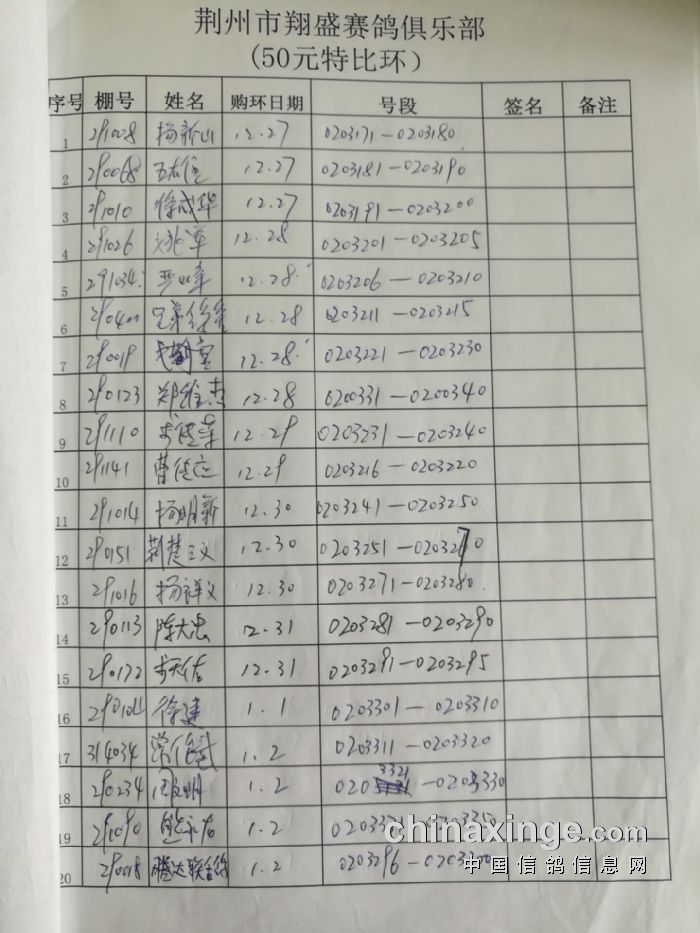 荆州市翔盛赛鸽俱乐部
(50元特比环)
序号 棚号 姓名 购环日期 号段 签名 备注
1 291008 杨新山 12.27 0203171—0203180
2 290068 12.27 0203181—0203190
3 291010 徐成华 12.27 0203191—0203200
4 291026 姚军 12.28 0203201—0203205
5 291034 12.28 0203206—0203210
6 12.28 0203211—0203215
7 290019 12.28 0203221—0203230
8 290123 郑维杰 12.28 0200331—0200340
9 291110 12.29 0203231—0203240
10 291141 曹 12.29 0203216—0203220
11 291014 杨明新 12.30 0203241—0203250
12 290151 荆楚三义 12.30 0203251—0203270
13 291016 杨祥义 12.30 0203271—0203280
14 290113 陈大忠 12.31 0203281—0203290
15 290172 12.31 0203291—0203295
16 徐建 1.1 0203301—0203310
17 314034 1.2 0203311—0203320
18 290234 1.2 020 3321—0203330
19 291090 熊 1.2
20 290018 腾达联合鸽 1.2 0203296—0203300
chinaxinge.com
中国信鸽信息网